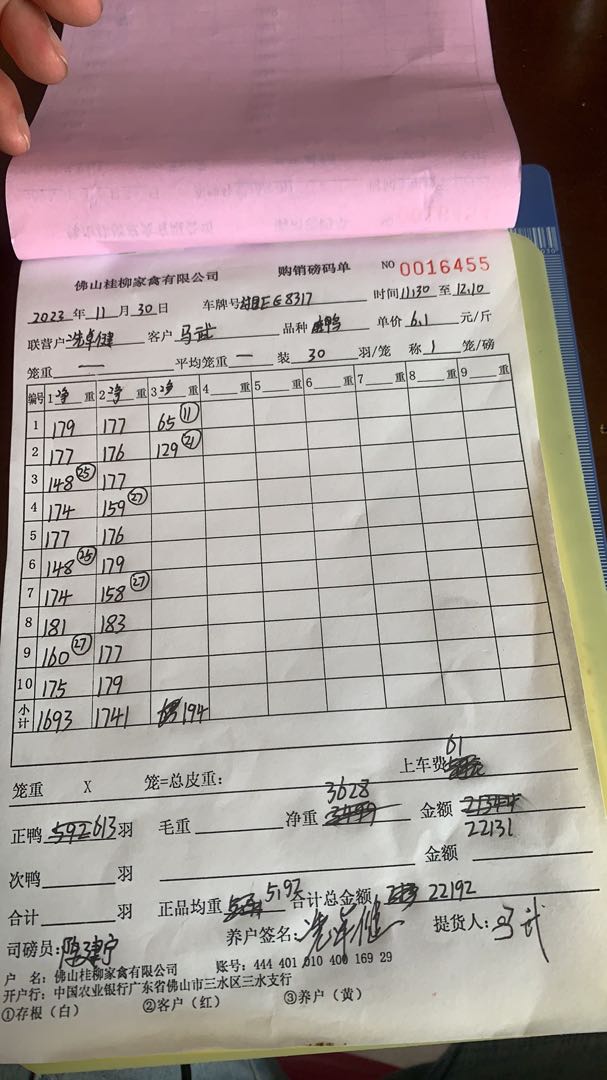 佛山桂柳家禽有限公司 购销磅码单 NO 0016455
2023 年 11 月 30 日 车牌号 EG8317 时间 11:30 至 12.10
联营户 冼卓健 客户 马武 品种 鸭 单价 6.1 元/斤
笼重 一 平均笼重 一 装 30 羽/笼 称 1 笼/磅
编号 1 净 重 2 净 重 3 净 重 4 重 5 重 6 重 7 重 8 重 9 重
1 179 177 65 ⑪
2 177 176 129 ㉑
3 148 ㉕ 177
4 174 159 ㉗
5 177 176
6 148 ㉕ 179
7 174 158 ㉗
8 181 183
9 160 ㉗ 177
10 175 179
小计 1693 1741 194
笼重 X 笼=总皮重: 上车费 61
正鸭 592 613 羽 毛重 净重 3499 3628 金额 21344 22131
次鸭 羽 金额
合计 羽 正品均重 5.92 合计总金额 22192
司磅员: 养户签名: 冼卓健 提货人: 马武
户 名: 佛山桂柳家禽有限公司 账号: 444 401 010 400 169 29
开户行: 中国农业银行广东省佛山市三水区三水支行
①存根（白） ②客户（红） ③养户（黄）